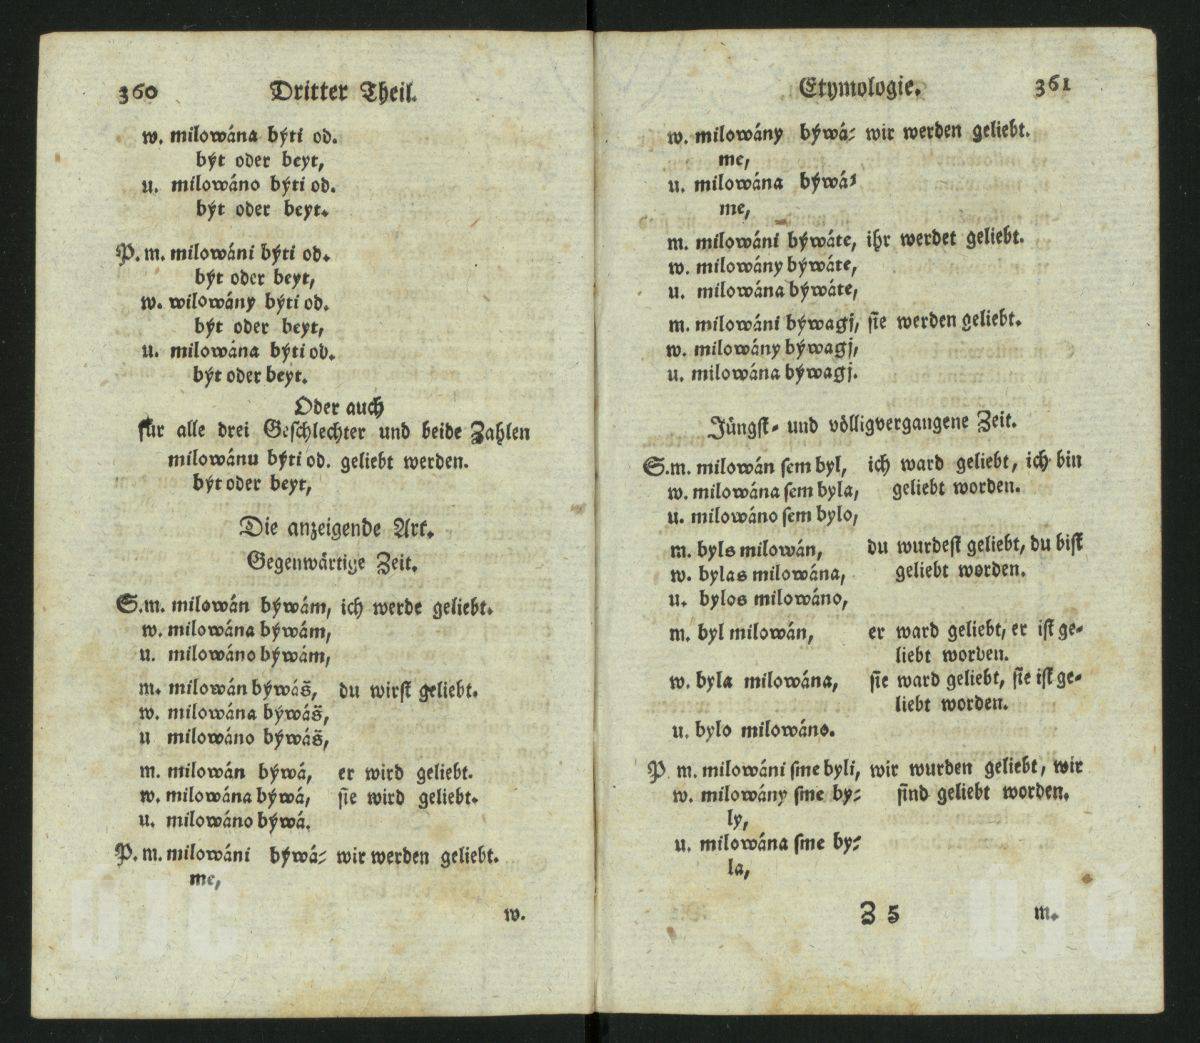 360 Dritter Theil.
w. milowána býti od.
být oder beyt,
u. milowáno býti od.
být oder beyt.
P. m. milowáni býti od.
být oder beyt,
w. wilowány býti od.
být oder beyt,
u. milowána býti od.
být oder beyt.
Oder auch
für alle drei Geschlechter und beide Zahlen
milowánu býti od. geliebt werden.
být oder beyt,
Die anzeigende Art.
Gegenwärtige Zeit.
S. m. milowán býwám, ich werde geliebt.
w. milowána býwám,
u. milowáno býwám,
m. milowán býwáš, du wirst geliebt.
w. milowána býwáš,
u milowáno býwáš,
m. milowán býwá, er wird geliebt.
w. milowána býwá, sie wird geliebt.
u. milowáno býwá.
P. m. milowáni býwá- wir werden geliebt.
me,
w.
Etymologie. 361
w. milowány býwá- wir werden geliebt.
me,
u. milowána býwá-
me,
m. milowáni býwáte, ihr werdet geliebt.
w. milowány býwáte,
u. milowána býwáte,
m. milowáni býwagj, sie werden geliebt.
w. milowány býwagj,
u. milowána býwagj.
Jüngst- und völligvergangene Zeit.
S. m. milowán sem byl, ich ward geliebt, ich bin
w. milowána sem byla, geliebt worden.
u. milowáno sem bylo,
m. byls milowán, du wurdest geliebt, du bist
w. bylas milowána, geliebt worden.
u. bylos milowáno,
m. byl milowán, er ward geliebt, er ist ge-
liebt worden.
w. byla milowána, sie ward geliebt, sie ist ge-
liebt worden.
u. bylo milowáno.
P m. milowáni sme byli, wir wurden geliebt, wir
w. milowány sme by- sind geliebt worden.
ly,
u. milowána sme by-
la,
Z 5 m.
UJC UJC